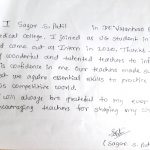 I Sagar S. Patil in Dr. Vaishmpa
dical college. I joined as UG student in
d come out as Intern in 2020. Thanks
wonderful and talented teachers to inf
is confidence in me. Our teachers made su
at we acquire essential skills to practice
is competitive world.
will always be grateful to my ever
encouraging teachers for shaping my
(Sagar S. Pat